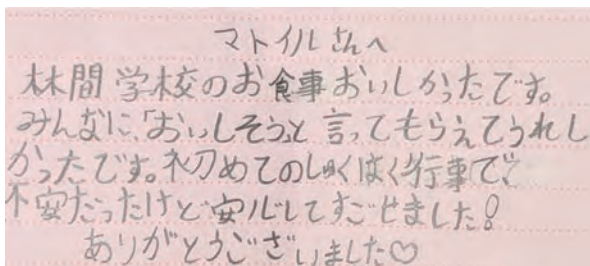 マトイルさんへ
林間学校のお食事おいしかったです。
みんなに、「おいしそう」と言ってもらえてうれし
かったです。初めてのしゅくはく行事で、
不安だったけど安心してすごせました!
ありがとうございました♡